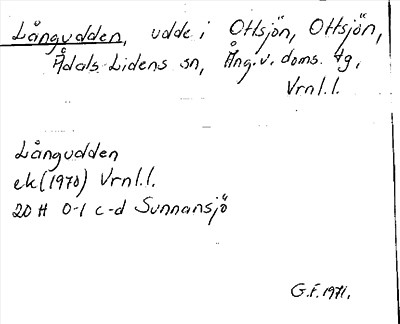 Långudden, udde i Ottsjön, Ottsjön,
Ådals-Lidens sn, Ång.v. doms. tg,
Vrnl.l.
Långudden
ek (1970) Vrnl.l.
20 H 0-1 c-d Sunnansjö
G.F. 1971.